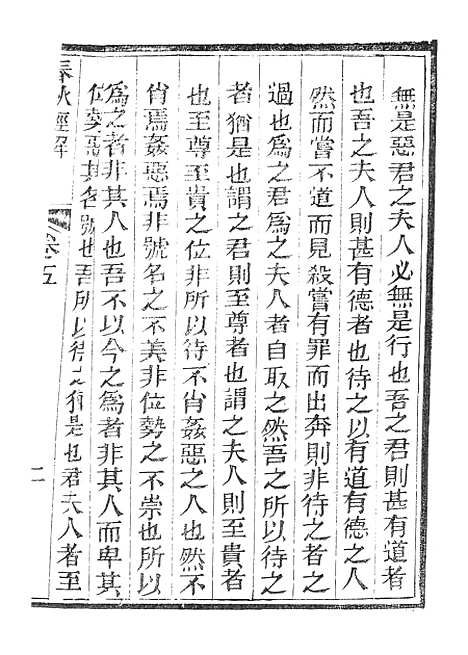 無是惡君之夫人必無是行也吾之君則甚有道者
也吾之夫人則甚有德者也待之以有道有德之人
然而嘗不道而見殺嘗有罪而出奔則非待之者之
過也為之君為之夫人者自取之然吾之所以待之
者猶是也謂之君則至尊者也謂之夫人則至貴者
也至尊至貴之位非所以待不肖姦惡之人也然不
肖焉姦惡焉非號名之不美非位勢之不崇也所以
為之者非其人也吾不以今之為者非其人而卑其
位勢惡其名號也吾所以待之猶是也君夫人者至
春秋經解
卷五
二